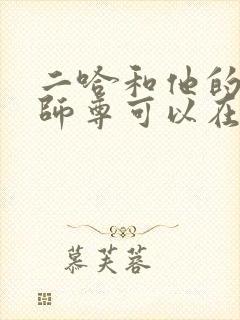 二哈和他的
師尊可以在
慕芙蓉